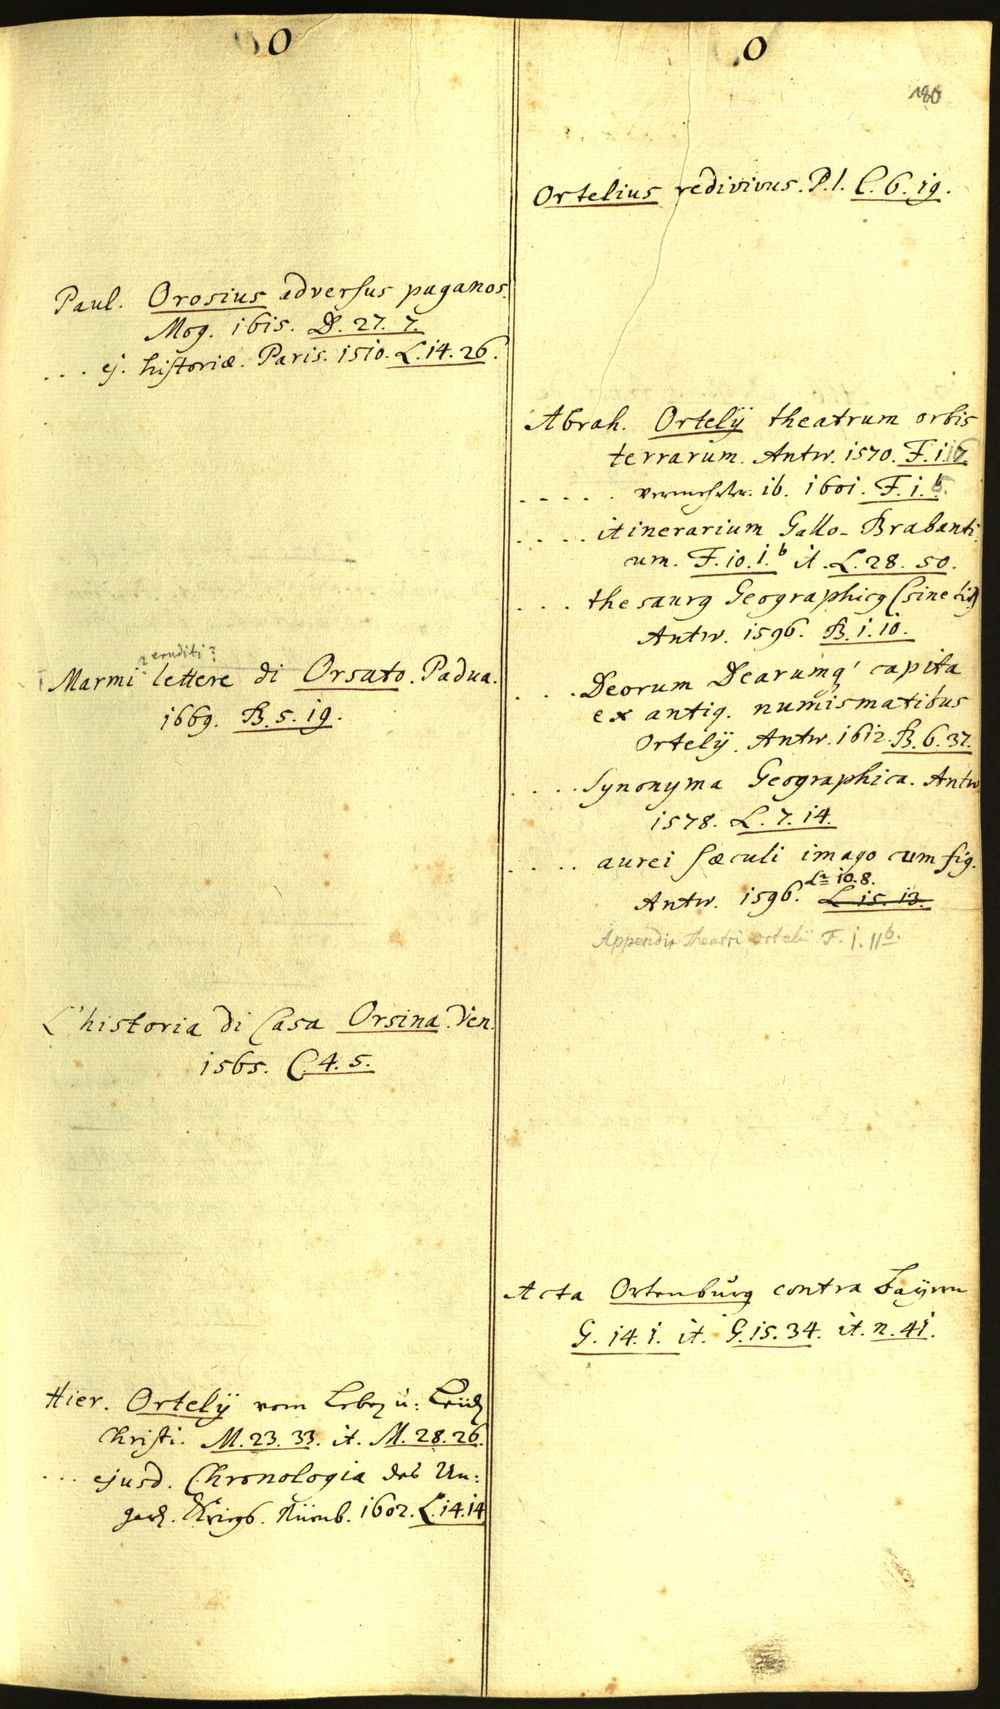 O
Paul. Orosius adversus paganos.
Mog. 1615. D. 27. 7.
... ej. historiæ. Paris. 1510. L. 14. 26.
eruditi?
Marmi lettere di Orsato. Padua.
1669. B. 5. 19.
L'historia di Casa Orsina. Ven.
1565. C. 4. 5.
Hier. Ortelÿ vom Leben u: Leiden
Christi. M. 23. 33. it. M. 28. 26.
... ejusd. Chronologia des Un:
gar. Kriegs. Nürnb. 1602. L. 14. 14
O
180
Ortelius redivivus. P. 1. C. 6. 19.
Abrah. Ortelÿ theatrum orbis
terrarum. Antw. 1570. F. 1.
..... ib. 1601. F. 1.
.... itinerarium Gallo-Brabanti
um. F. 10. 1.b it. L. 28. 50.
... thesaurg Geographicg (sine
Antw. 1596. B. 1. 10.
.... Deorum Dearumq' capita
ex antiq. numismatibus
Ortelÿ. Antw. 1612. B. 6. 37.
.... Synonyma Geographica. Antw
1578. L. 7. 14.
.... aurei sæculi imago cum fig.
Antw. 1596. L 15. 13. 10. 8.
Appendix theatri Ortelii F. 1. 11b.
Acta Ortenburg contra Baÿern
G. 14. 1. it. G. 15. 34. it. n. 41.